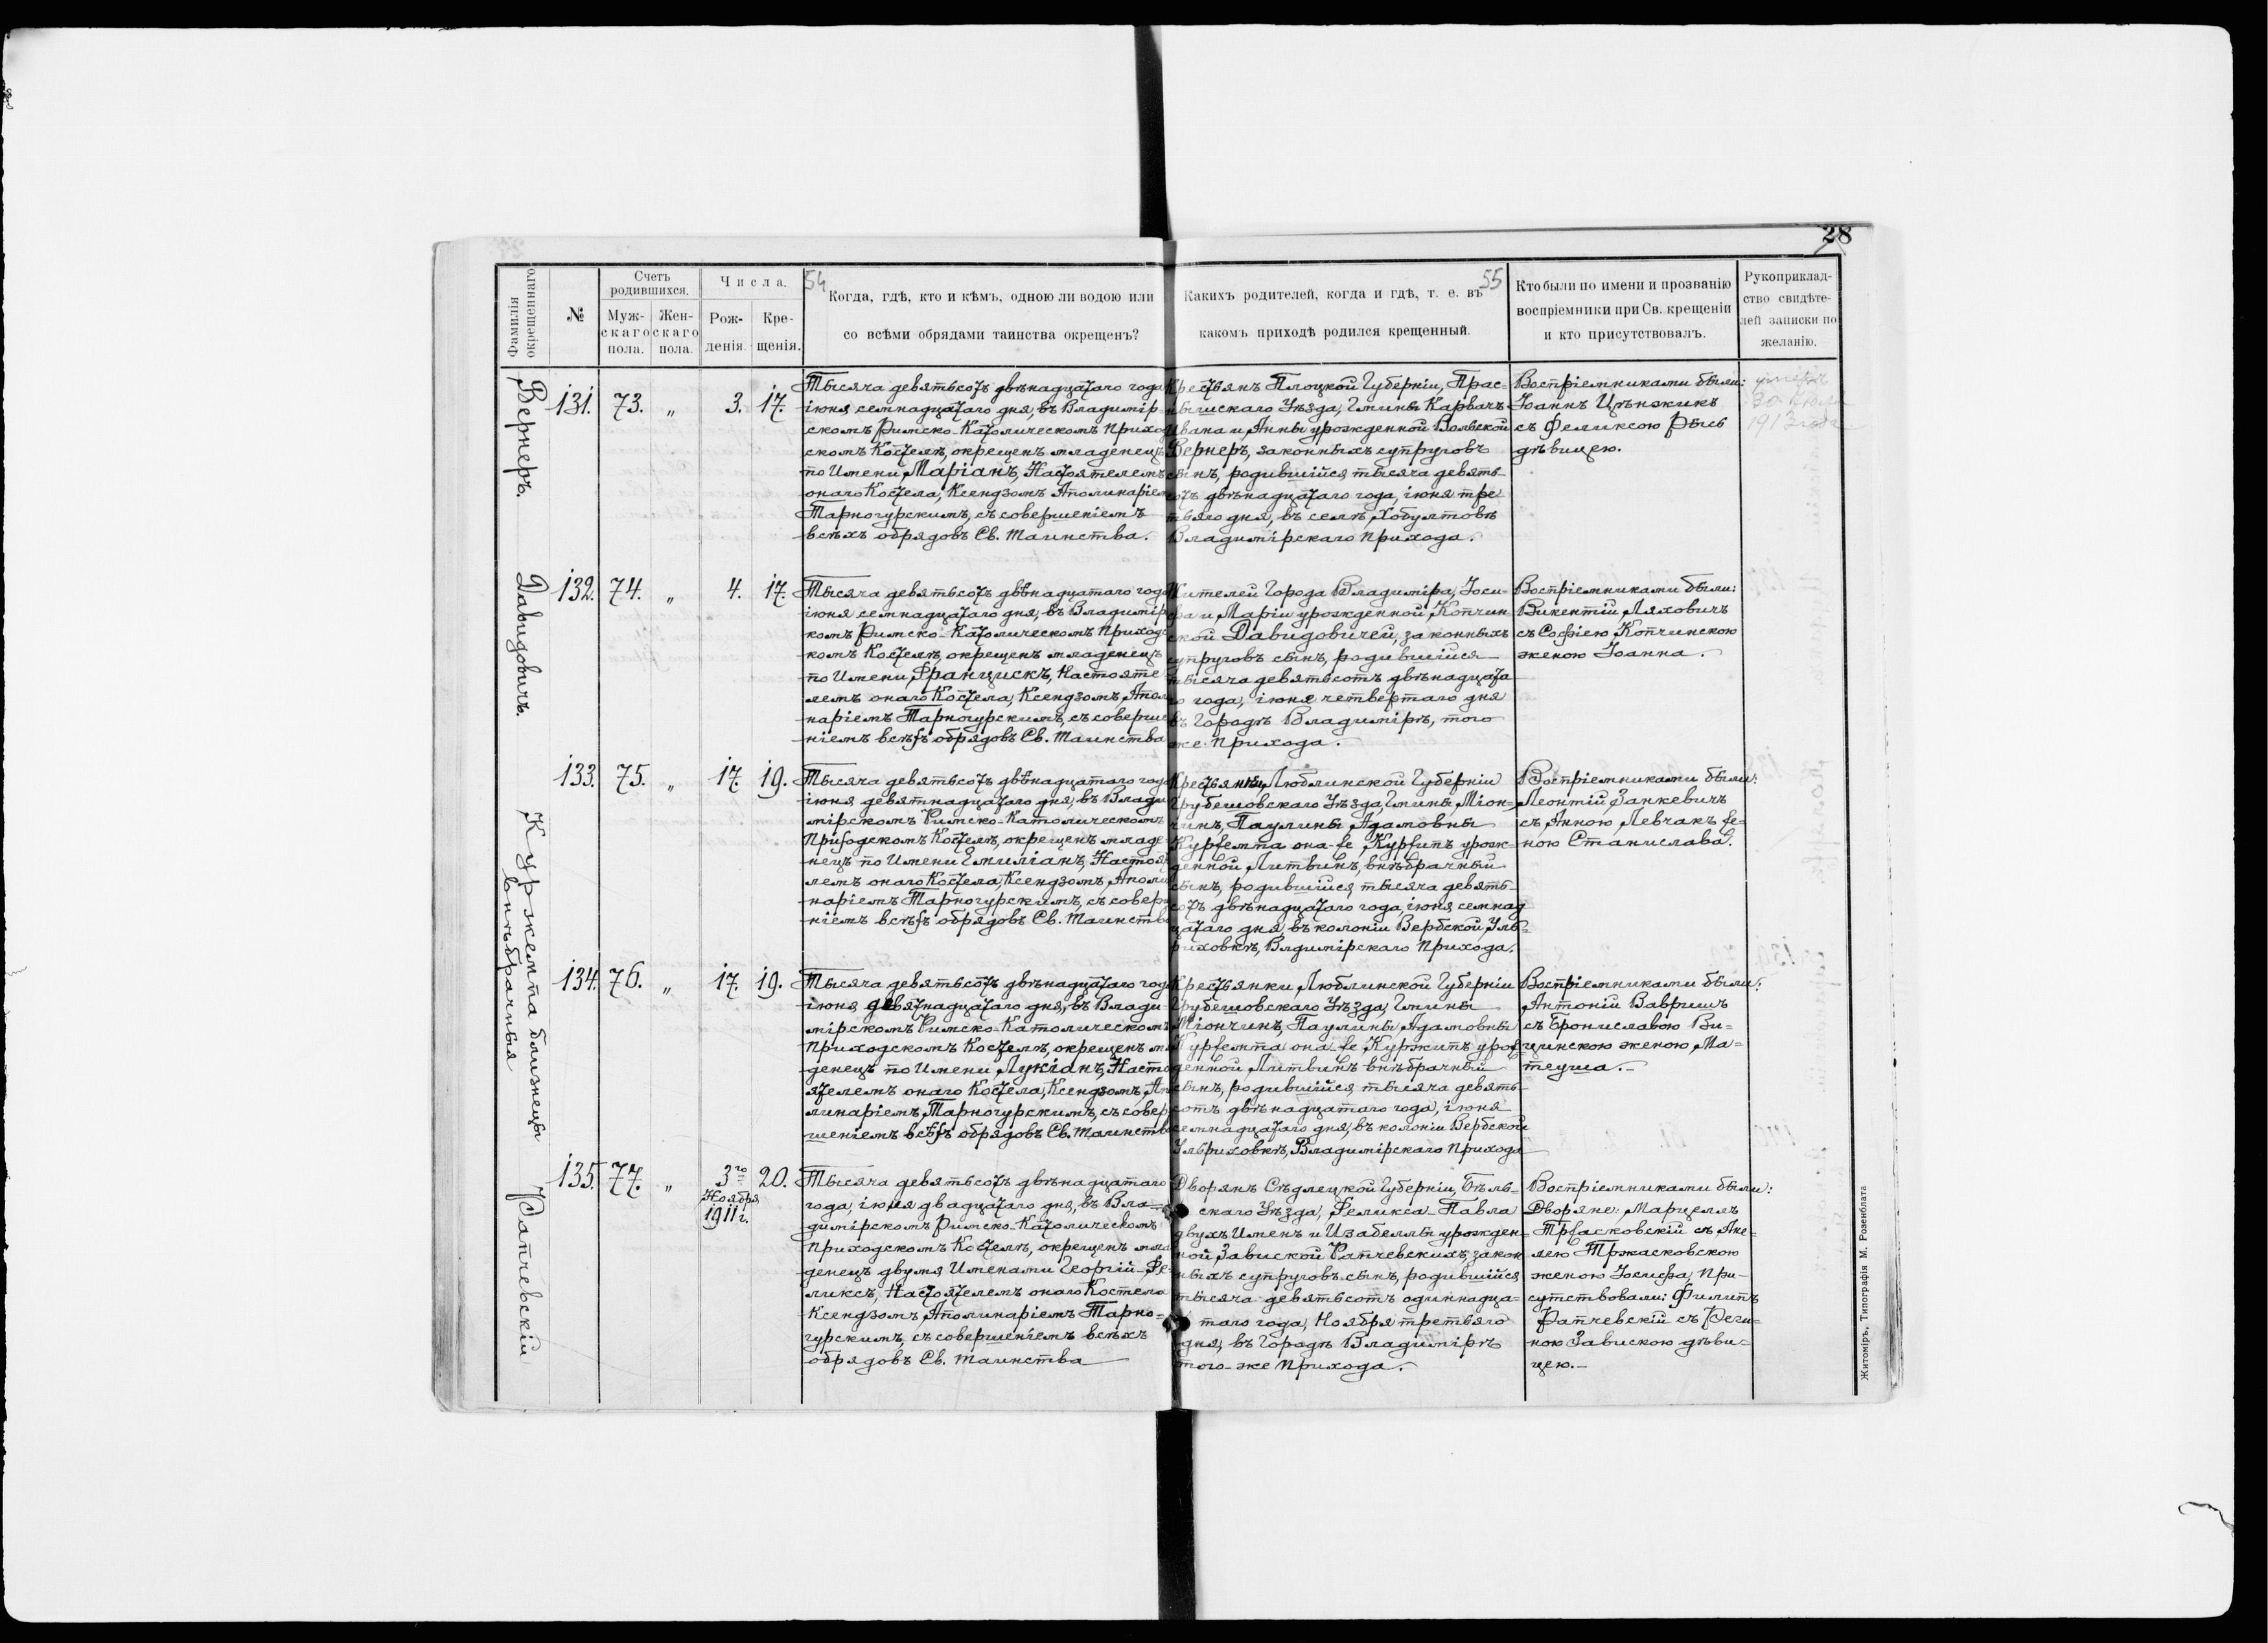 28
54
55
Фамилія окрещеннаго.
№
Счетъ родившихся.
Муж-скаго пола.
Жен-скаго пола.
Числа.
Рож-денія.
Кре-щенія.
Когда, гдѣ, кто и кѣмъ, одною ли водою или
со всѣми обрядами таинства окрещенъ?
Какихъ родителей, когда и гдѣ, т. е. въ
какомъ приходѣ родился крещенный.
Кто были по имени и прозванію
воспріемники при Св. крещеніи
и кто присутствовалъ.
Рукоприклад-
ство свидѣте-
лей записки по
желанію.
Вернеръ.
131. 73. „ 3. 17.
Тысяча девятьсотъ двѣнадцатаго года
іюня семнадцатаго дня, въ Владимір-
скомъ Римско-Католическомъ Приход
скомъ Костелѣ, окрещенъ младенецъ
по Имени Маріанъ, Настоятелемъ
онаго Костела, Ксендзомъ Аполинаріем
Тарногурскимъ, съ совершеніемъ
всѣхъ обрядовъ Св. Таинства.
Крестьянъ Плоцкой Губерніи, Прас-
нышскаго Уѣзда, Гмины Карвачъ
Ивана и Анны урожденной Вольской
Вернеръ, законныхъ супруговъ
сынъ, родившійся тысяча девять-
сотъ двѣнадцатаго года, іюня тре
тьяго дня, въ селѣ, Хобултовѣ
Владимірскаго Прихода.
Воспріемниками были:
Іоаннъ Цѣнжикъ
съ Феликсою Рысь
дѣвицею.
умеръ
30 Іюля
1913 года
Давидовичъ.
132. 74. „ 4. 17.
Тысяча девятьсотъ двѣнадцатаго года
іюня семнадцатаго дня, въ Владимір
комъ Римско-Католическомъ Приходс
комъ Костелѣ, окрещенъ младенецъ
по Имени Францискъ, Настояте-
лемъ онаго Костела, Ксендзомъ, Апол
наріемъ Тарногурскимъ, съ соверше
ніемъ всѣхъ обрядовъ Св. Таинства
Жителей Города Владиміра, Іоси-
фа и Маріи урожденной Копчин
ской Давидовичей, законныхъ
супруговъ сынъ, родившійся
тысяча девятьсотъ двѣнадцата
го года, іюня четвертаго дня
въ Городѣ Владимірѣ, того
же Прихода.
Воспріемниками были:
Викентій Ляховичъ
съ Софіею Копчинскою
женою Іоанна.
Куржемпа близнецы
вопнѣбрачныя
133. 75. „ 17. 19.
Тысяча девятьсотъ двѣнадцатаго года
іюня девятнадцатаго дня, въ Влади
мірскомъ Римско-Католическомъ
Приходскомъ Костелѣ, окрещенъ младе-
нецъ по Имени Емиліанъ, Настоят
лемъ онаго Костела, Ксендзомъ, Аполи
наріемъ Тарногурскимъ, съ соверш
ніемъ всѣхъ обрядовъ Св. Таинства
Крестьянки, Люблинской Губерніи
Грубешовскаго Уѣзда, Гмины, Міон-
чинъ, Паулины Адамовны
Куржемпа она-же Куржипъ урож-
денной Литвинъ, внѣбрачный
сынъ, родившійся, тысяча девять-
сотъ двѣнадцатаго года, іюня, семнад
цатаго дня, въ колоніи Вербской, Уль-
риховкѣ, Влдимірскаго Прихода.
Воспріемниками были:
Леонтій Занкевичъ
съ Анною Левчакъ же-
ною Станислава.
134. 76. „ 17. 19.
Тысяча девятьсотъ двѣнадцатаго года
іюня девятнадцатаго дня, въ Влади-
мірскомъ Римско-Католическомъ
Приходскомъ Костелѣ, окрещенъ мла
денецъ по Имени Лукіанъ, Насто
ятелемъ онаго Костела, Ксендзомъ, Апо
линаріемъ Тарногурскимъ, съ совер
шеніемъ всѣхъ обрядовъ Св. Таинства
Крестьянки, Люблинской Губерніи
Грубешовскаго Уѣзда, Гмины
Міончинъ, Паулины Адамовны
Куржемпа она-же Куржипъ урож
денной Литвинъ внѣбрачный
сынъ, родившійся, тысяча девять-
сотъ двѣнадцатаго года, іюня
семнадцатаго дня, въ колоніи Вербской
Ульриховкѣ, Владимірскаго Прихода
Воспріемниками были:
Антоній Вавришъ
съ Брониславою Ви-
цинскою женою, Ма-
теуша.
Рапчевскій
135. 77. „ 3го Ноября 1911 г. 20.
Тысяча девятьсотъ двѣнадцатаго
года, іюня двадцатаго дня, въ Вла-
димірскомъ Римско-Католическомъ
Приходскомъ Костелѣ, окрещенъ мла
денецъ двумя Именами Георгій-Фе-
ликсъ, Настоятелемъ онаго Костела
Ксендзомъ, Аполинаріемъ Тарно-
гурскимъ, съ совершеніемъ всѣхъ
обрядовъ Св. Таинства
Дворянъ Сѣдлецкой Губерніи, Бѣль-
скаго Уѣзда, Феликса-Павла
двухъ Именъ и Изабеллы урожден-
ной, Завиской Рапчевскихъ, закон
ныхъ супруговъ сынъ, родившійся
тысяча девятьсотъ одиннадца-
таго года, Ноября третьяго
дня, въ Городѣ Владимірѣ
того-же Прихода.
Воспріемниками были:
Дворяне: Марцеллъ
Тржасковскій съ Ане-
лею Тржасковскою
женою Іосифа, При-
сутствовали: Филипъ
Рапчевскій съ Реги-
ною Завискою дѣви-
цею.
Житоміръ, Типографія М. Розенблата